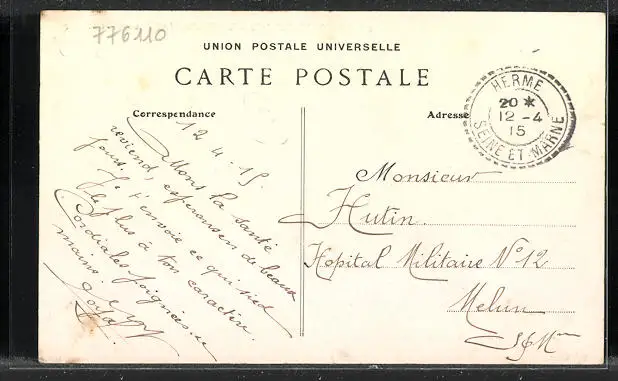 776110
UNION POSTALE UNIVERSELLE
CARTE POSTALE
Correspondance
Adresse
HERME
20 *
12 - 4
15
SEINE ET MARNE
12. 4. 15.
Mons la santé
revient, espérons en de beaux
jours. Je t'envoie ce qui sied
le plus à ton caractère.
Cordiales poignées de
mains.
Monsieur
Hutin
Hopital Militaire N° 12
Melun
S & M